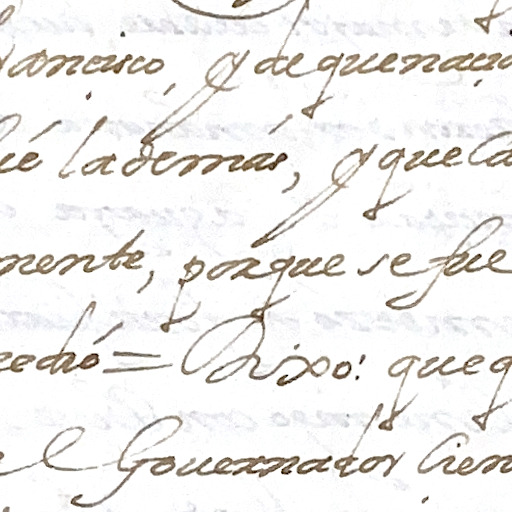 rancisco, y de que nacio
ué la demás, y que la
mente, porque se fue
cedió = Dixo: que q
el Governador Cien